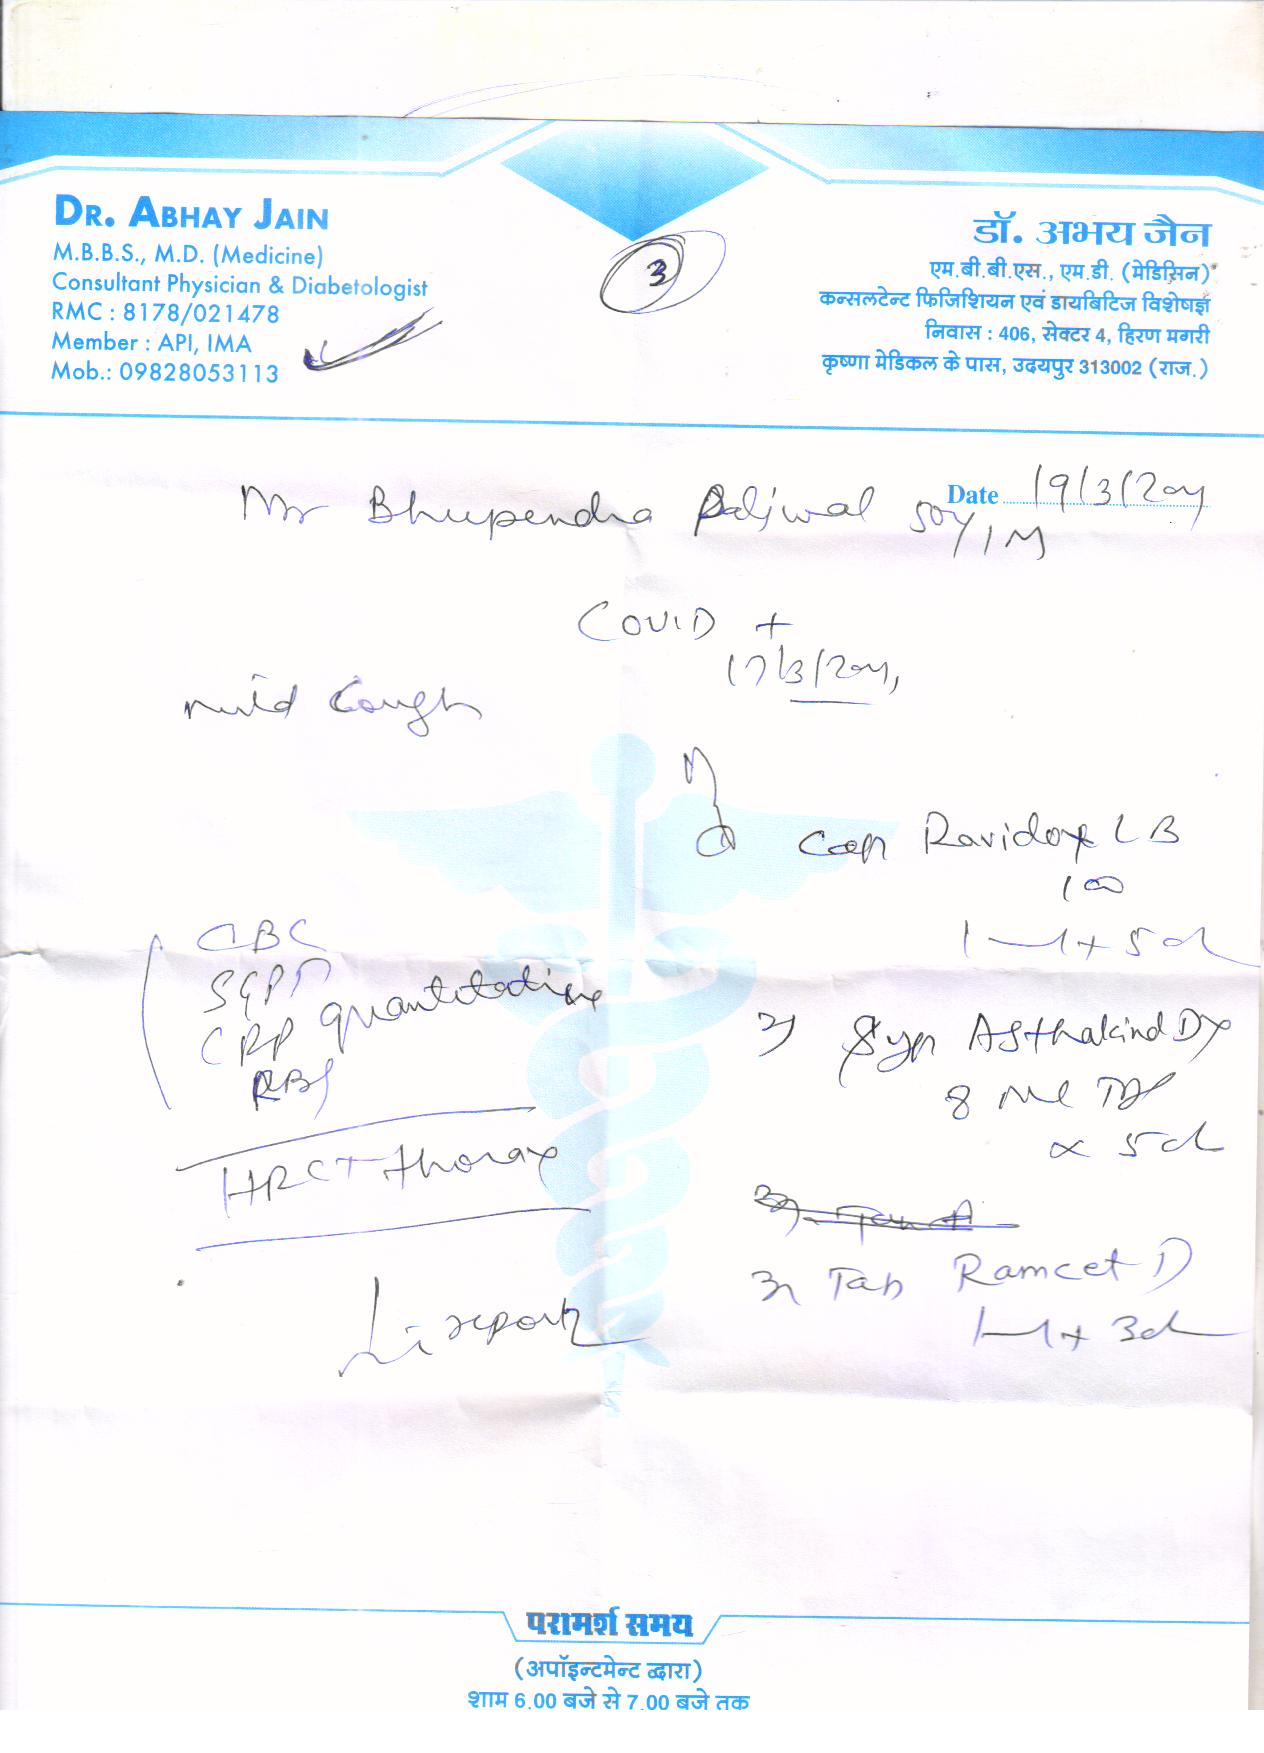 DR. ABHAY JAIN
M.B.B.S., M.D. (Medicine)
Consultant Physician & Diabetologist
RMC : 8178/021478
Member : API, IMA
Mob.: 09828053113
3
डॉ. अभय जैन
एम.बी.बी.एस., एम.डी. (मेडिसिन)
कन्सलटेन्ट फिजिशियन एवं डायबिटिज विशेषज्ञ
निवास : 406, सेक्टर 4, हिरण मगरी
कृष्णा मेडिकल के पास, उदयपुर 313002 (राज.)
Date 19/3/2021
Mr Bhupendra Paliwal 50y/M
COVID +
17/3/2021,
mild Cough
Cap Ravidox LB
100
5d
CBC
SGPT
CRP quantitative
RBS
HRCT thorax
report
2) Syp Asthakind DX
8 ml TDS
x 5d
3) Tab Ramcet D
3d
परामर्श समय
(अपॉइन्टमेन्ट द्वारा)
शाम 6.00 बजे से 7.00 बजे तक